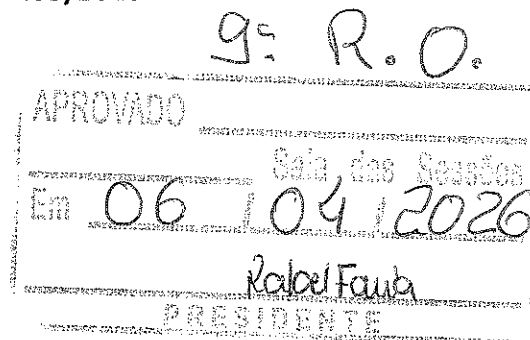 9ª R.O.
APROVADO
Sala das Sessões
Em 06 / 04 / 2026
PRESIDENTE